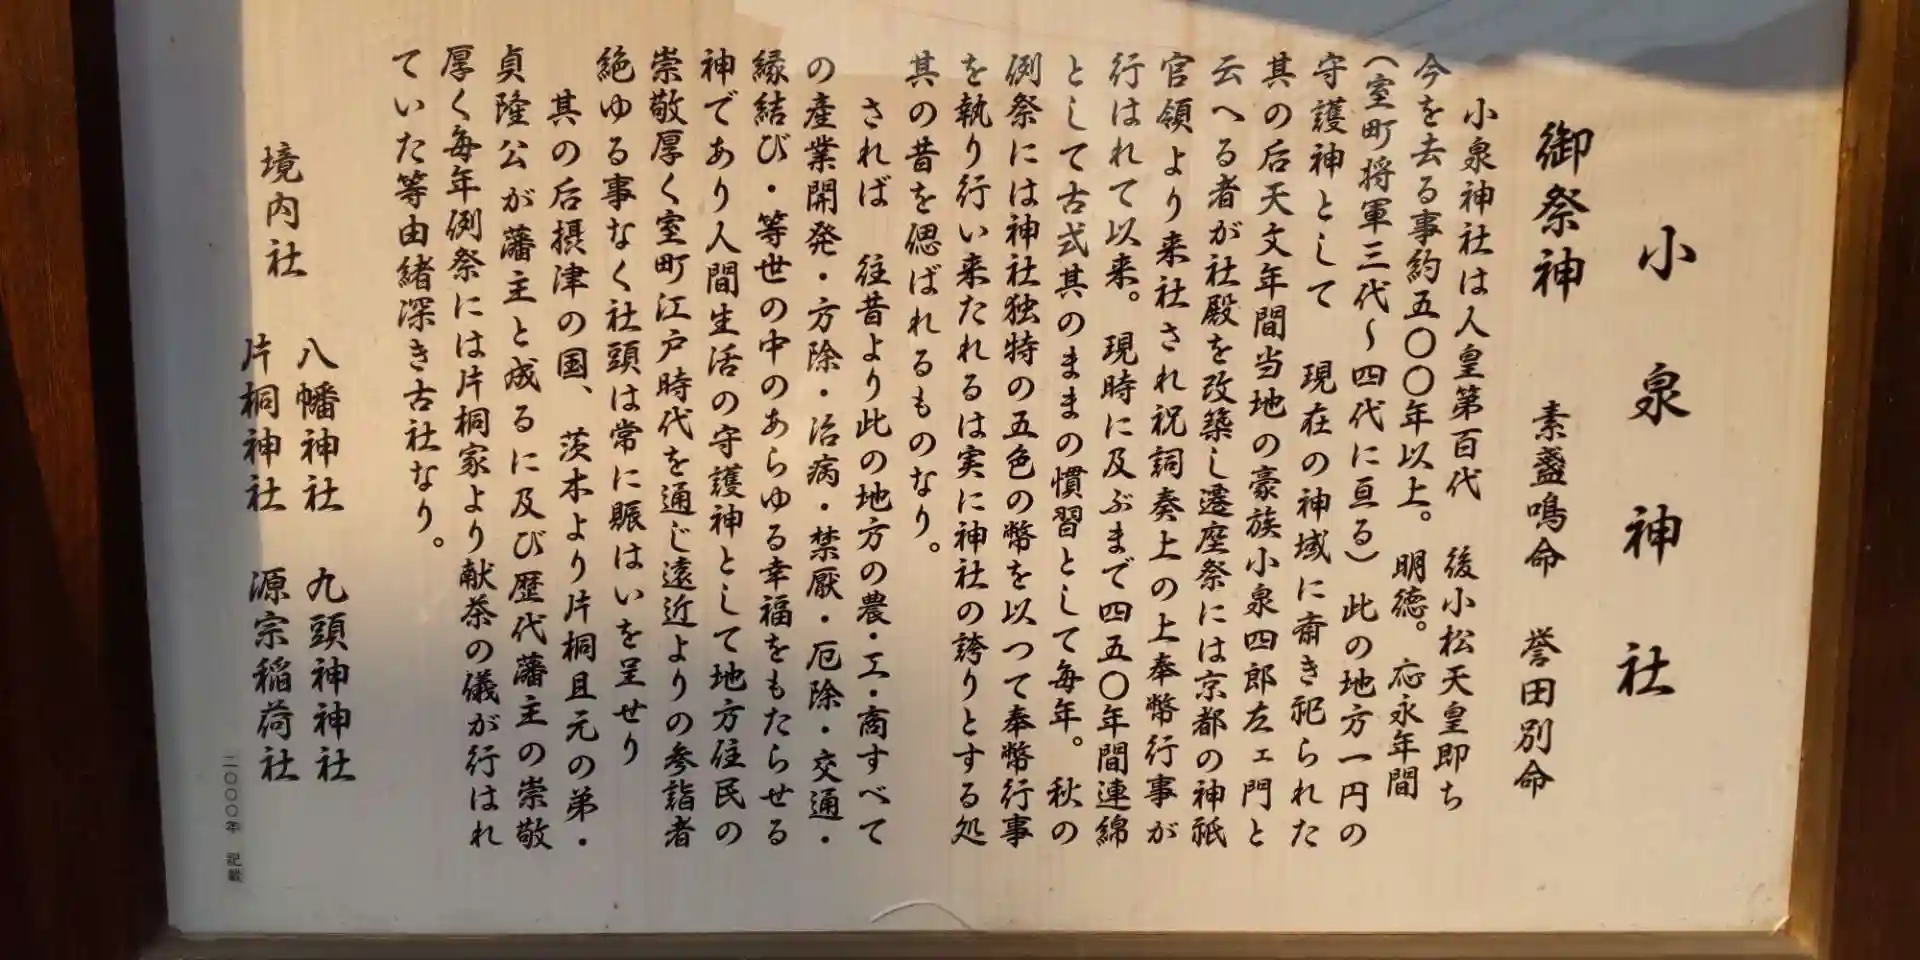 小泉神社
御祭神　素盞鳴命　誉田別命
小泉神社は人皇第百代　後小松天皇即ち
今を去る事約五〇〇年以上。明徳。応永年間
（室町将軍三代〜四代に亘る）此の地方一円の
守護神として　現在の神域に斎き祀られた
其の后天文年間当地の豪族小泉四郎左ェ門と
云へる者が社殿を改築し遷座祭には京都の神祇
官領より来社され祝詞奏上の上奉幣行事が
行はれて以来。現時に及ぶまで四五〇年間連綿
として古式其のままの慣習として毎年。秋の
例祭には神社独特の五色の幣を以つて奉幣行事
を執り行い来たれるは実に神社の誇りとする処
其の昔を偲ばれるものなり。
されば　往昔より此の地方の農・工・商すべて
の産業開発・方除・治病・禁厭・厄除・交通・
縁結び・等世の中のあらゆる幸福をもたらせる
神であり人間生活の守護神として地方住民の
崇敬厚く室町江戸時代を通じ遠近よりの参詣者
絶ゆる事なく社頭は常に賑はいを呈せり
其の后摂津の国、茨木より片桐且元の弟・
貞隆公が藩主と成るに及び歴代藩主の崇敬
厚く毎年例祭には片桐家より献茶の儀が行はれ
ていた等由緒深き古社なり。
境内社　八幡神社　九頭神神社
片桐神社　源宗稲荷社
二〇〇〇年　記載